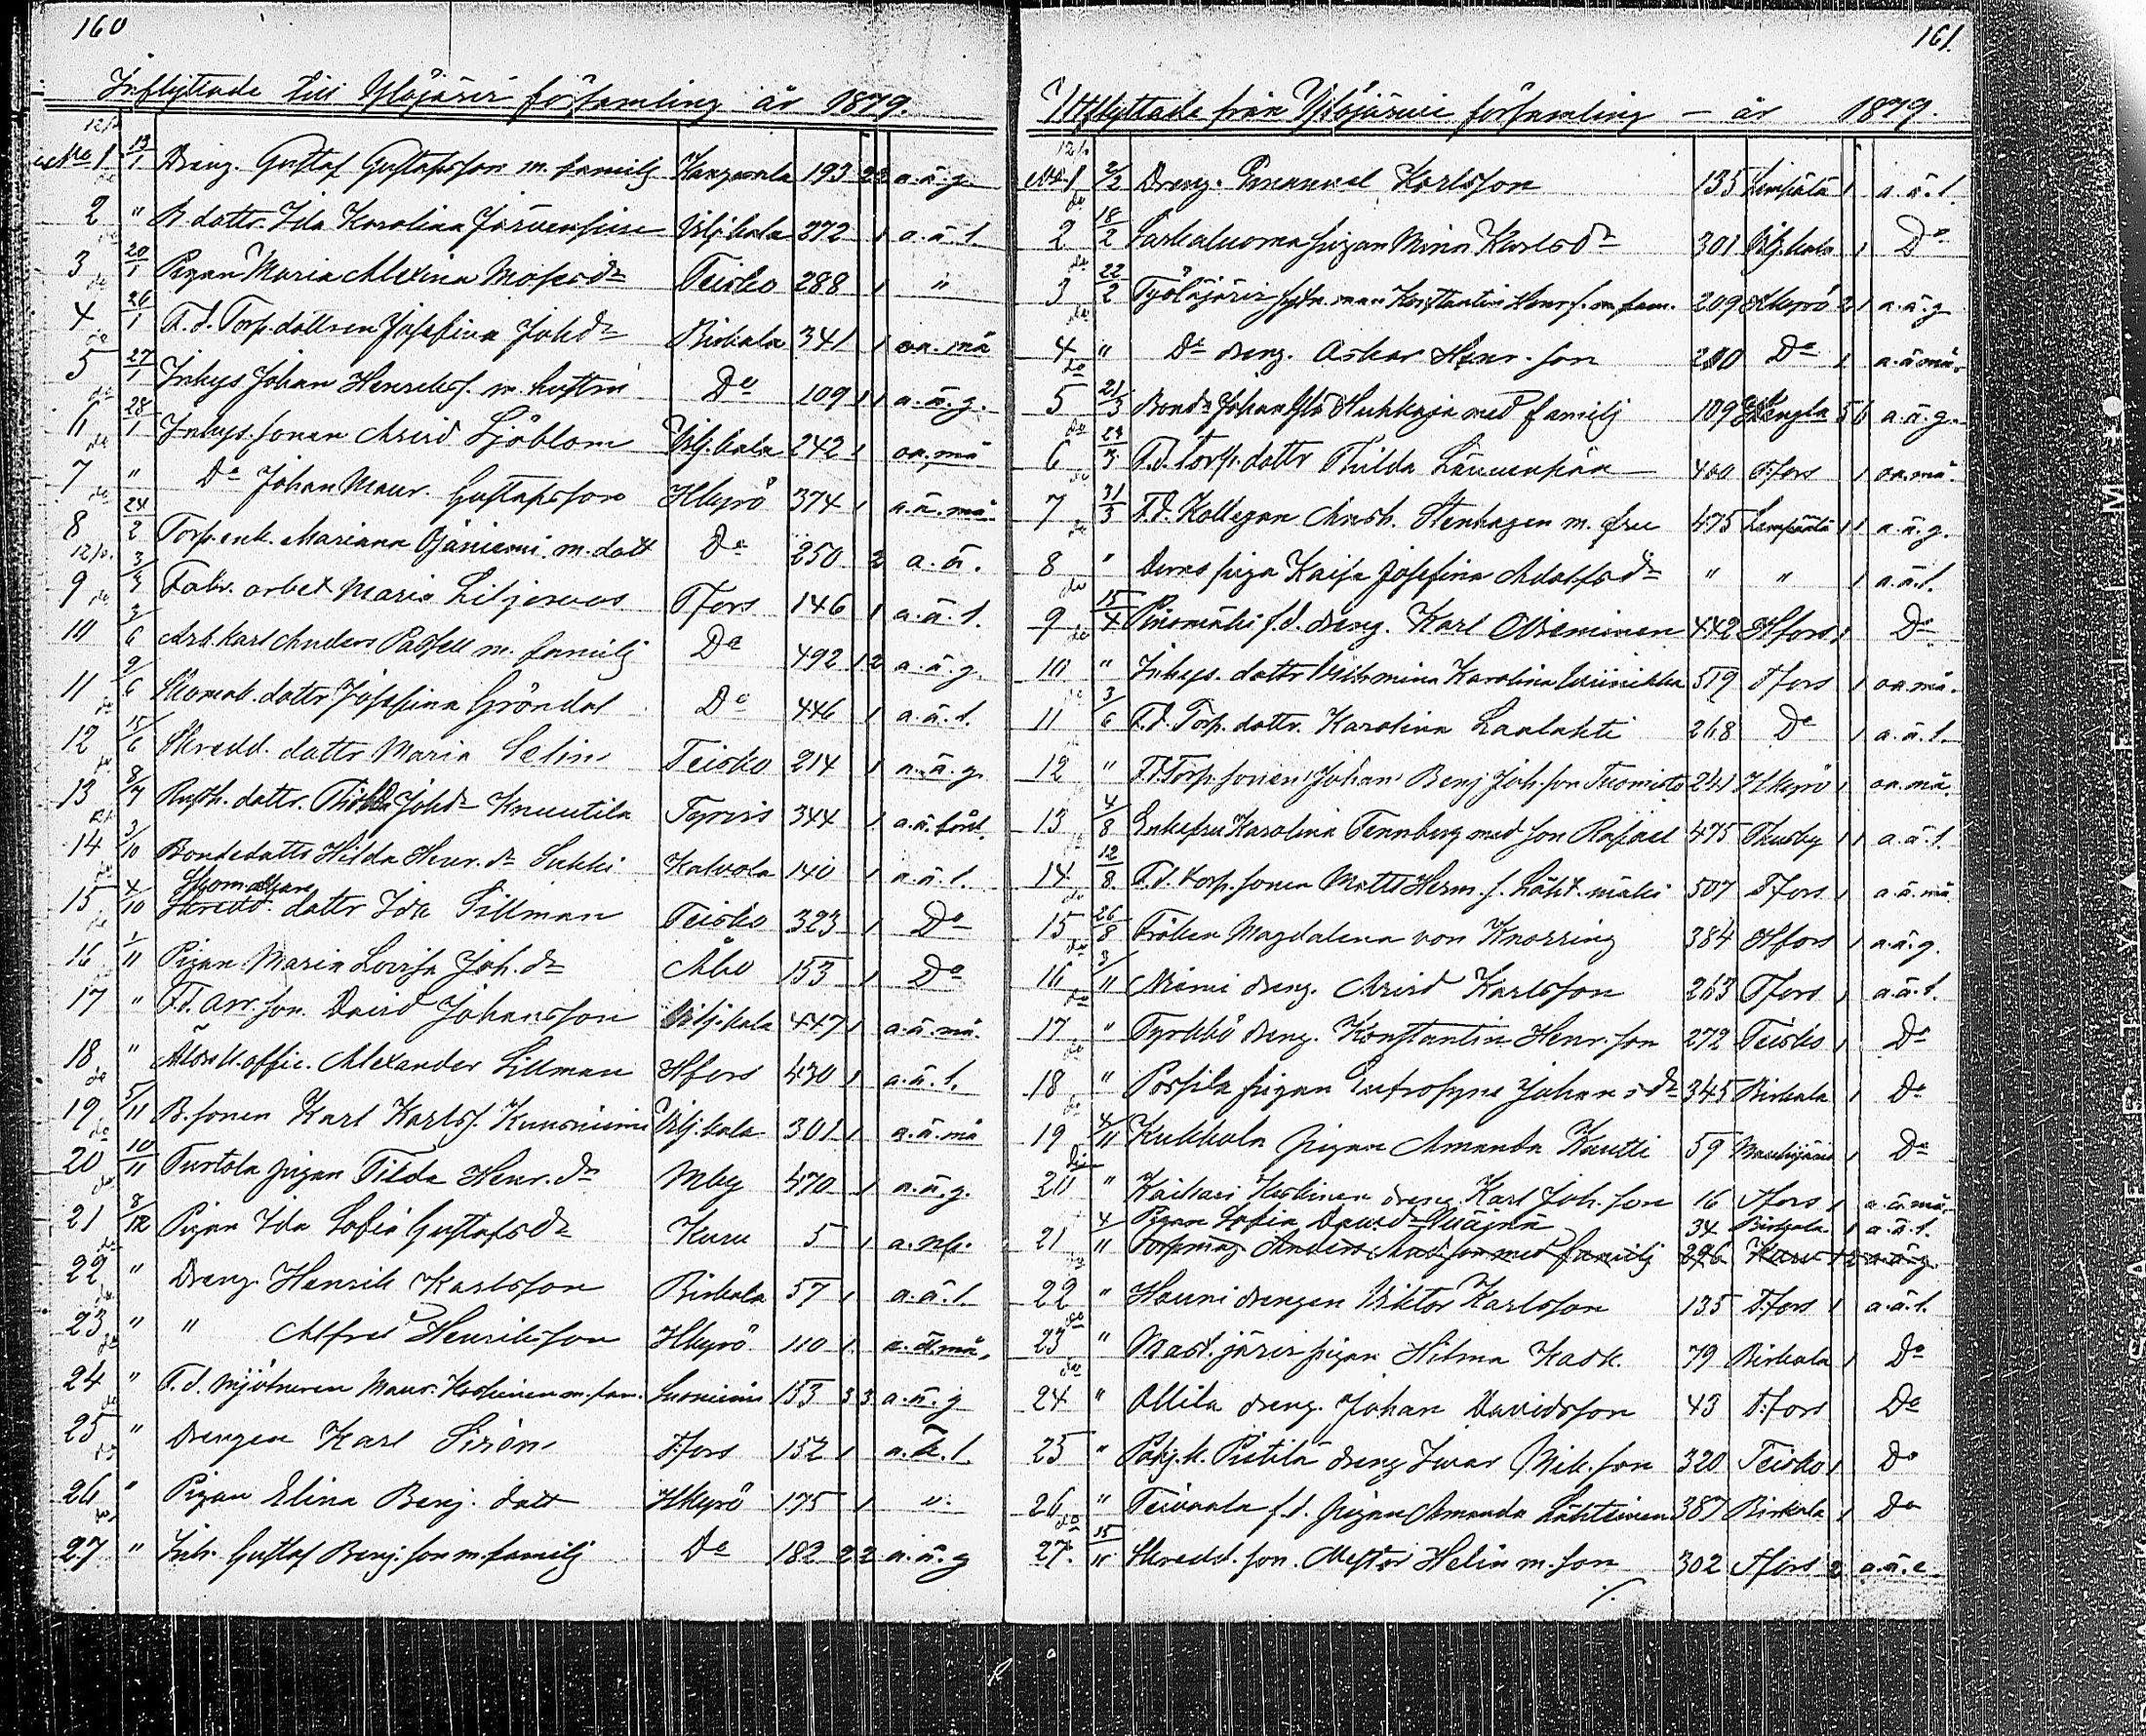 160
Inflyttade till Ylöjärvi församling år 1879.
No 1 13/1 Dreng. Gustaf Gustafsson m. familj Kangasala 193 2 2 a.ä.g.
2 " B. dottr. Ida Karolina Järvensivu Vilj.kala 272 1 a.ä.l.
3 20/1 Pigan Maria Alexina Mosesdr Teisko 288 1 "
4 26/1 F.d. Torp. dottren Josefina Johdr Birkala 341 1 oa. må
5 27/1 Inhys Johan Henrikss. m. hustru Do 109 1 1 a.ä.g.
6 28/1 Inhys. sonen Arvid Sjöblom Vilj.kala 242 1 oa. må
7 " Do Johan Maur. Gustafsson HKyrö 374 1 a.ä. må
8 24/2 Torp. enk. Mariana Ojaniemi m. dott Do 250 2 a.ä.
9 3/4 Fabr. arbet Maria Liljeroos Tfors 146 1 a.ä.l.
10 3/6 Arb. Karl Anders m. familj Do 492 1 2 a.ä.g.
11 9/6 Skomak. dottr Josefina Gröndal Do 446 1 a.ä.l.
12 15/6 Skredd. dottr Maria Selin Teisko 214 1 a.ä.g.
13 8/7 Rusth. dottr. Thilda Johdr Knuutila Tyrvis 344 1 a.ä.
14 3/10 Bondedottr Hilda Henr. dr Sukki Kalvola 140 1 a.ä.l.
15 4/10 Skomakare dottr Ida Sillman Teisko 323 1 Do
16 1/11 Pigan Maria Lovisa Joh. dr Åbo 153 1 Do
17 " F.d. Arr. son. David Johansson Vilj.kala 447 1 a.ä. må.
18 " Alexander Sillman Hfors 430 1 a.ä.l.
19 5/11 B. sonen Karl Karlss. Kuusniemi Vilj.kala 301 1 a.ä. må
20 10/11 Turtola pigan Tilda Henr. dr Mby 470 1 a.ä.g.
21 8/12 Pigan Ida Sofia Gustafsdr Kuru 5 1 a.
22 " Dreng Henrik Karlsson Birkala 57 1 a.ä.l.
23 " " Alfred Henriksson HKyrö 110 1 a.ä. må.
24 " F.d. Mjölnaren Maur. Koskinen m. fam. Suoniemi 153 3 3 a.ä.g
25 " Drengen Karl Sirén Tfors 152 1 a.ä.l.
26 " Pigan Elina Benj. dott HKyrö 175 1 "
27 " Inh. Gustaf Benj. son m. familj Do 182 2 2 a.ä.g
161.
Utflyttade från Ylöjärvi församling — år 1879.
No 1 2/2 Dreng. Emanuel Karlsson 135 Lempäälä 1 a.ä.l.
2 18/2 Sarkaluoma pigan Mina Karlsdr 301 Vilj.kala 1 Do
3 22/2 Työläjärvi Konstantin Henrs. m. fam. 209 HKyrö 2 1 a.ä.g
4 " Do dreng. Oskar Henr. son 210 Do 1 a.ä. må.
5 21/3 Bond. Johan Ylä Huhkaja med familj 109 5 6 a.ä.g.
6 29/3 F.d. Torp. dottr Thilda Länsenpää 400 Tfors 1 oa. må.
7 31/3 F.d. Kollegan Stenhagen m. fru 475 Lempäälä 1 1 a.ä.g.
8 " Deras piga Kaisa Josefina Adolfsdr " " 1 a.ä.l.
9 15/4 Pinomäki f.d. dreng. Karl 442 Hfors 1 Do
10 " Inhys. dottr Vilhelmina Karolina Viinikka 519 Tfors 1 oa. må.
11 3/6 F.d. Torp. dottr. Karolina Laalahti 268 Do 1 a.ä.l.
12 " F.d. Torp. sonen Johan Benj Joh. son Tuomisto 241 HKyrö 1 oa. må.
13 4/8 Enkefru Karolina Tennberg med son Rafael 475 Thusby 1 1 a.ä.l.
14 12/8 F.d. torp. sonen Matts Herm. s. Läht. mäki 507 Tfors 1 a.ä. må
15 26/8 Fröken Magdalena von Knorring 384 Hfors 1 a.ä.g.
16 3/11 Niemi dreng. Arvid Karlsson 263 Tfors 1 a.ä.l.
17 " Tyrkkö dreng. Konstantin Henr. son 272 Teisko 1 Do
18 " Possila pigan Eufrosyne Johansdr 345 Birkala 1 Do
19 4/11 Kukkola pigan Amanda Kautti 59 Mouhijärvi 1 Do
20 " Kaikari Koskinen dreng Karl Joh. son 16 Tfors 1 a.ä. må
Pigan Sofia Davidsdr 34 Birkala 1 a.ä.l.
21 4/11 Torpmag Anders And. son med familj 296 Kuru 1 2 a.ä.g.
22 " Hauni drengen Viktor Karlsson 135 T.fors 1 a.ä.l.
23 " Mast.järvi pigan Hilma Kask. 79 Birkala 1 Do
24 " Ollila dreng. Johan Davidsson 43 T.fors Do
25 " Pohj.k. Pietilä dreng Ivar Mik. son 320 Teisko 1 Do
26 " Teivaala f.d. pigan Amanda Lähteinen 387 Birkala 1 Do
27. 15/11 Skredd. son. Nestor Helin m. son 302 Tfors 2 a.ä.l.